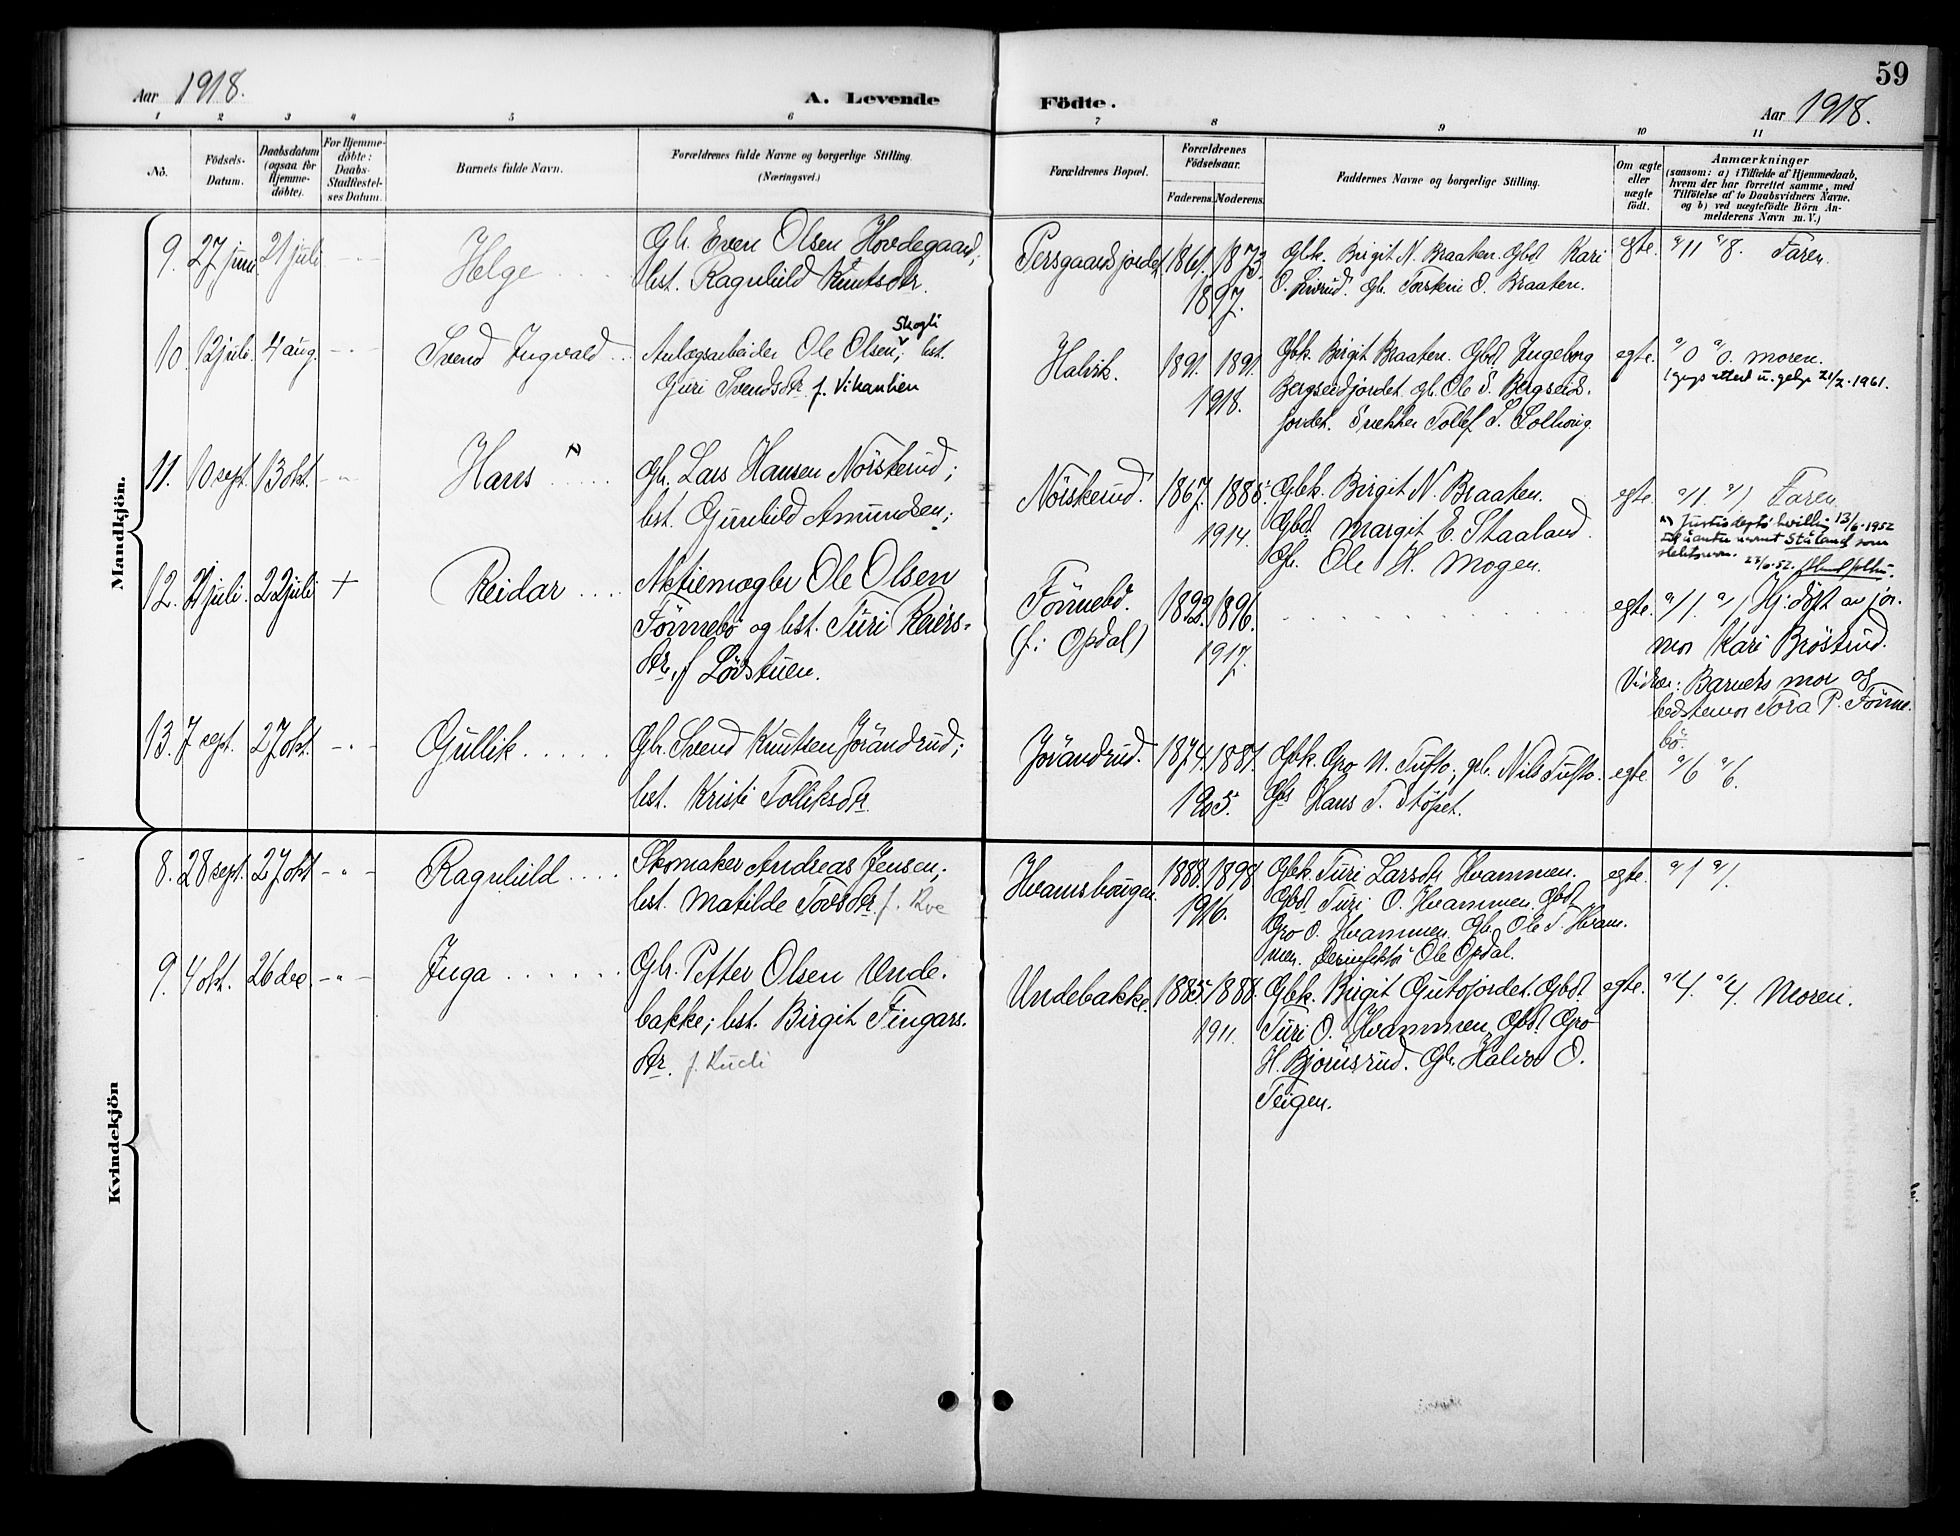 59
Aar 1918.
A. Levende Födte.
Aar 1918.
1 2 3 4 5 6 7 8 9 10 11
No.
Födsels-Datum.
Daabsdatum (ogsaa for Hjemme-döbte).
For Hjemme-döbte: Daabs-Stadfæstel-ses Datum.
Barnets fulde Navn.
Forældrenes fulde Navne og borgerlige Stilling.
(Næringsvei.)
Forældrenes Bopæl.
Forældrenes Födselsaar.
Faderens. Moderens.
Faddernes Navne og borgerlige Stilling.
Om ægte eller uægte födt.
Anmærkninger
(saasom: a) i Tilfælde af Hjemmedaab,
hvem der har forrettet samme, med
Tilföielse af to Daabsvidners Navne,
og b) ved uægtefödte Börn An-
melderens Navn m. V.)
Mandkjön.
9. 27 juni 21 juli - " -
Helge
Gbr. Even Olsen Hovdegaard;
hst. Ragnhild Knutsdtr.
Persgaardsjordet
1861. 1873.
1897.
Gbk. Birgit N. Braaten. Gbd. Kari
O. Livrud. Gbr. Torstein O. Braaten.
egte.
a/11 a/8. Faren.
10. 12 juli. 4 aug. - " -
Svend Ingvald
Anlægsarbeider Ole Olsen Skogli; hst.
Guri Svendsdtr f. Vikanlien
Halvik.
1891. 1891.
1918.
Gbk. Birgit Braaten. Gbd. Ingeborg
Bergseidjordet. Gbr. Ole S. Bergseid-
jordet. Snekker Tollef S. Solhovig.
egte.
a/0 a/0. moren.
21/2.1961.
11. 10 sept. 13 okt. - " -
Hans
Gbr. Lars Hansen Nörskerud;
hst. Gunhild Amundsen;
Nörskerud.
1867. 1885.
1914.
Gbk. Birgit N. Braaten.
Gbd. Margit E. Staaland.
Gbr. Ole H. Mogen.
egte.
a/1. a/1 Faren
Justisdepts bevilling 13/6.1952
til å anta navnet Støland som
slektsnavn.
23/6.52.
12. 21 juli. 22 juli +
Reidar
Aktiemægler Ole Olsen
Fönnebö og hst. Turi Reiers-
dtr. f Lövstuen.
Fönnebö.
(f: Opdal)
1892. 1896.
1917.
egte.
a/1. a/1 Hj. döpt av jor-
mor Kari Bröstrud.
Vidner: Barnets mor og
bedstemor Tora P. Fönne-
bö.
13. 7 sept. 27 okt. - " -
Gullik
Gbr. Svend Knutsen Jörandrud;
hst. Kristi Tolliksdtr.
Jörandrud.
1874. 1881.
1905.
Gbk. Gro N. Tufto, gbr. Nils Tufto.
Gbs Hans T. Stöpet.
egte.
a/6 a/6.
Kvindekjön
8. 28 sept. 27 okt - " -
Ragnhild
Skomaker Andreas Jensen;
hst. Matilde Torsdtr f. Kve
Hvamshaugen.
1888. 1898
1916.
Gbk. Turi Larsdtr Hvammen.
Gbd. Turi O. Hvammen. Gbd.
Gro O. Hvammen. Gbr. Ole T. Hvam-
men. Desinfektör Ole Opdal.
egte.
a/1 a/1.
9. 4 okt. 26 dec. - " -
Inga
Gbr. Petter Olsen Unde-
bakke; hst. Birgit Fingars-
dtr.
Undebakke.
1885 1888.
1911.
Gbk. Birgit Gutojordet. Gbd.
Turi O. Hvammen. Gbd. Gro
H. Bjornsrud. Gbr. Halvor O.
Teigen.
egte.
a/4. a/4. Moren.